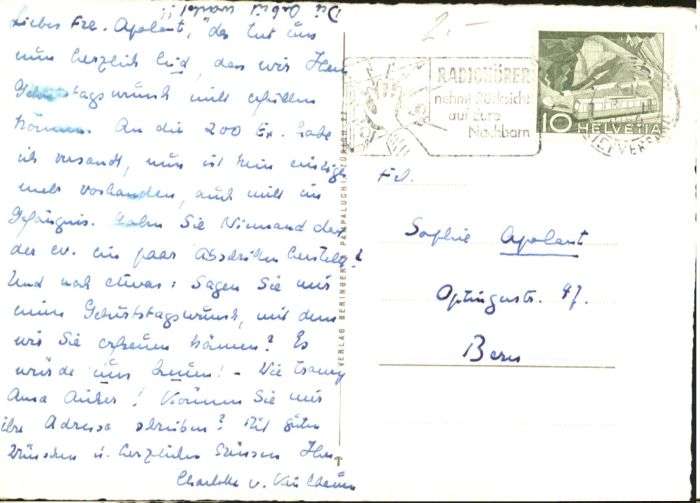 Liebes Frl. Apolant, es tut uns
nun herzlich leid, dass wir Ihren
Geburtstagswunsch nicht erfüllen
können. An die 200 Ex. habe
ich versandt, nun ist kein einziges
mehr vorhanden, auch nicht im
Gefängnis. Haben Sie Niemand der
der ev. ein paar Abschriften herstellt?
Und noch etwas: Sagen Sie mir
einen Geburtstagswunsch, mit dem
wir Sie erfreuen können? Es
würde uns freuen! - Wie traurig
Anna! Können Sie mir
ihre Adresse schreiben? Mit guten
Wünschen u. herzlichen Grüssen Ihre
Charlotte v.
2.-
RADIOHÖRER
nehmt Rücksicht
auf Eure
Nachbarn
10 HELVETIA
VERLAG BERINGER & PAMPALUCHI, ZÜRICH
Frl.
Sophie Apolant
Optingenstr. 47.
Bern